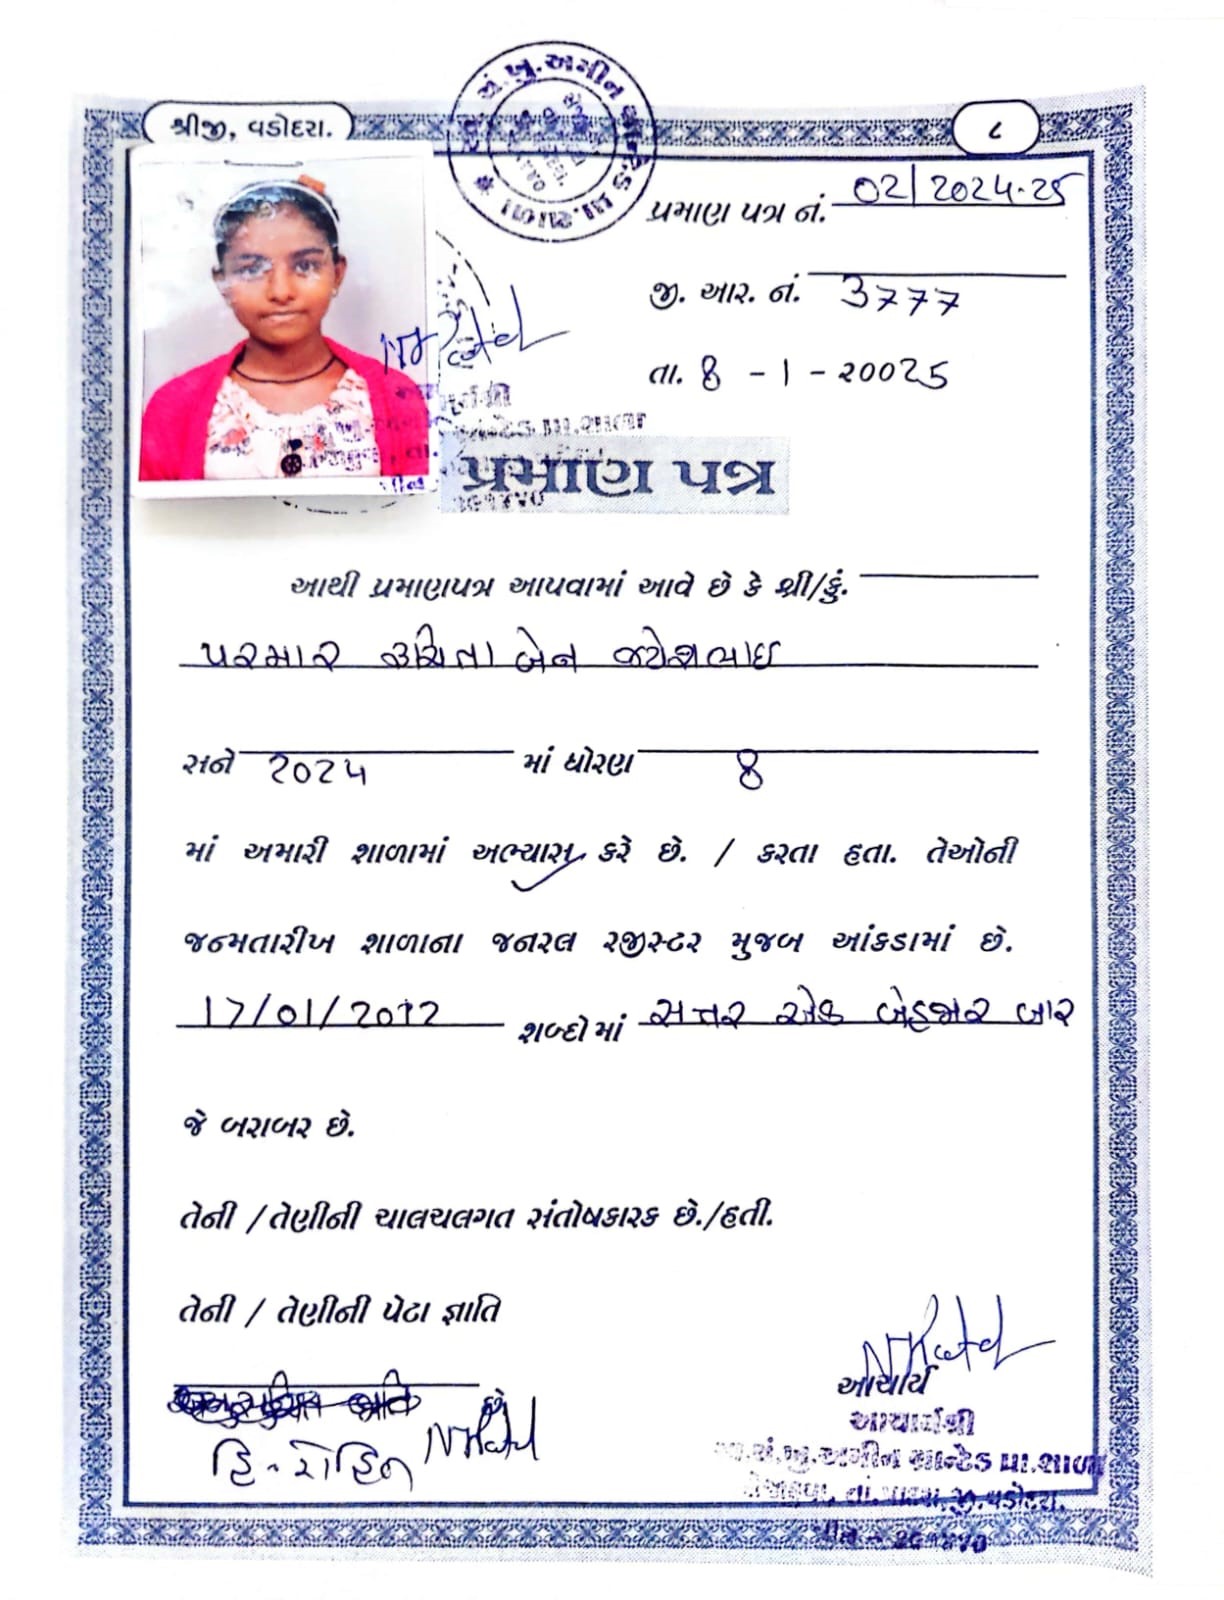 શ્રીજી, વડોદરા.
૮
પ્રમાણ પત્ર નં. 02/2024-25
જી. આર. નં. 3777
તા. 8 - 1 - 20025
પ્રમાણ પત્ર
આથી પ્રમાણપત્ર આપવામાં આવે છે કે શ્રી/કું.
પરમાર ઉર્મિતાબેન જયેશભાઇ
સને 2024 માં ધોરણ 8
માં અમારી શાળામાં અભ્યાસ કરે છે. / કરતા હતા. તેઓની
જન્મતારીખ શાળાના જનરલ રજીસ્ટર મુજબ આંકડામાં છે.
17/01/2012 શબ્દોમાં સત્તર એક બેહજાર બાર
જે બરાબર છે.
તેની / તેણીની ચાલચલગત સંતોષકારક છે./હતી.
તેની / તેણીની પેટા જ્ઞાતિ
છે
હિ - રોહિત
NPatel
NPatel
આચાર્ય
આચાર્યશ્રી
ચં.ખુ.અમીન ગ્રાન્ટેડ પ્રા.શાળા
તા. પાદરા, જી.વડોદરા.